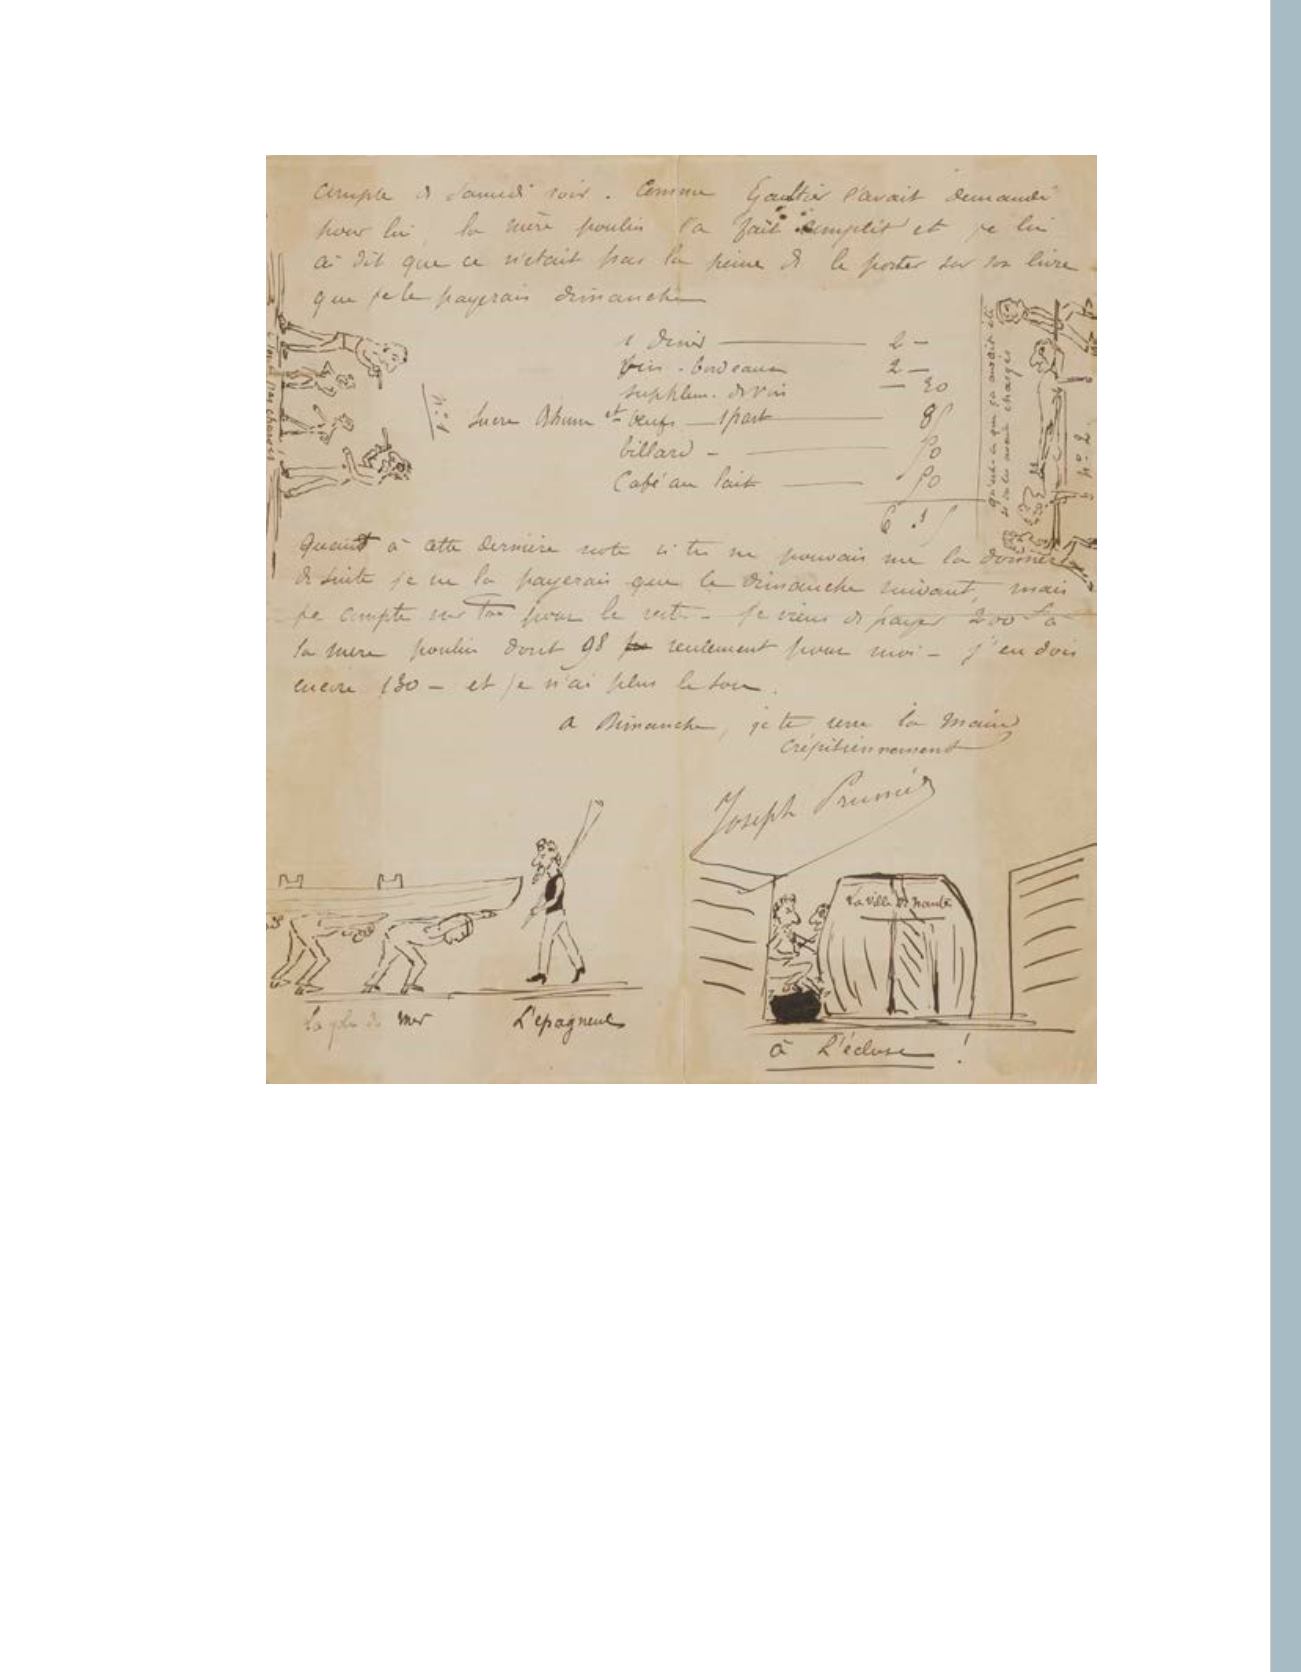 compte de Samedi soir. Comme Gaultier l'avait demandé
pour lui, la mère poulin l'a fait complet et je lui
ai dit que ce n'etait pas la peine de le porter sur son livre
que je le payerais dimanche
1 diner 2 –
vin - bordeaux 2 –
supplem. de vin – 20
Sucre Rhum et œufs 1 part 85
billard – 50
Café au lait 50
6.
n° 1
n° 2
Quant à cette dernière note si tu ne pouvais me la donner
de suite je ne la payerais que le dimanche suivant, mais
je compte sur toi pour le reste – je viens de payer 200 f à
la mere poulin dont 98 seulement pour moi – j'en dois
encore 130 – et je n'ai plus le sou.
a Dimanche, je te serre la main
Crépitiennement
Joseph Prunier
La Ville de Nantes
mer
L'epagneul
à L'écluse !